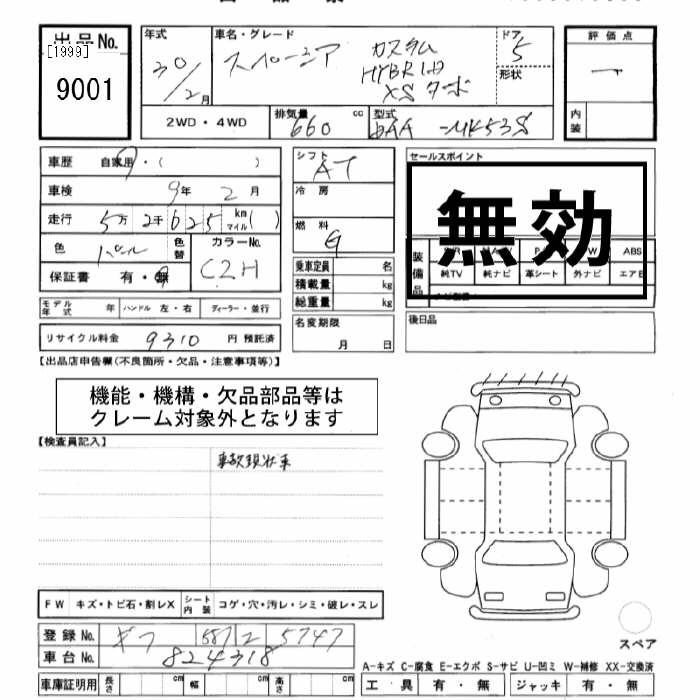 出品No.
[1999]
9001
年式
30/2月
車名・グレード
スペーシア カスタム
HYBRID
XS ターボ
ドア
5
形状
評価点
2WD・4WD
排気量
660 cc
型式
DAA-MK53S
内装
車歴 自家用・( )
車検 9年 2月
走行 5万2千625 km マイル( )
色 パール
色替
カラーNo.
CZH
保証書 有・無
モデル年式 年 ハンドル 左・右 ディーラー・並行
リサイクル料金 9310 円 預託済
シフト
AT
冷房
燃料
G
乗車定員 名
積載量 kg
総重量 kg
名変期限
月 日
セールスポイント
無効
装備品
ABS
純TV 純ナビ 革シート 外ナビ エアB
後日品
【出品店申告欄(不良箇所・欠品・注意事項等)】
機能・機構・欠品部品等は
クレーム対象外となります
【検査員記入】
事故現状車
FW キズ・トビ石・割レX シート内装 コゲ・穴・汚レ・シミ・破レ・スレ
登録No. ギフ 587 2 5747
車台No. 824318
車庫証明用 長さ cm 幅 cm 高さ cm
スペア
A-キズ C-腐食 E-エクボ S-サビ U-凹ミ W-補修 XX-交換済
工具 有・無 ジャッキ 有・無